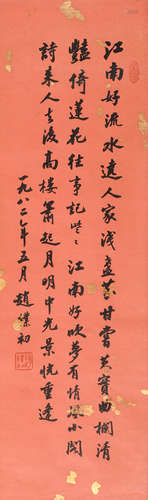 江南好流水遶人家淺盞茶甘雷芙寶曲欄清
豔倚蓮花往事記些些 江南好吹夢有情風小閣
詩來人去後高樓簫起月明中光景恍重逢
一九八二年五月 趙樸初